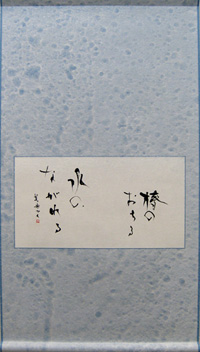 椿の
おちる
水の
ながれる